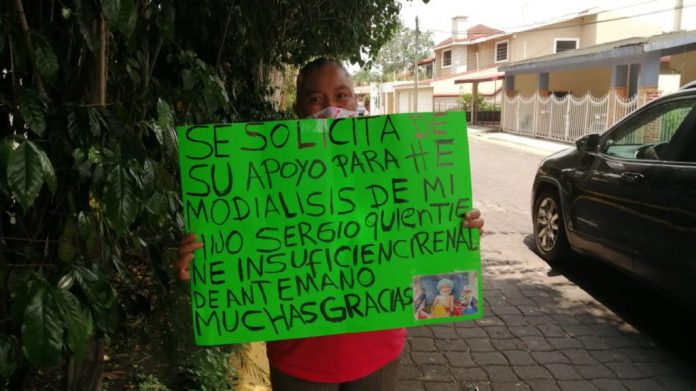 SE SOLICITA DE
SU APOYO PARA HE
MODIALISIS DE MI
HIJO SERGIO QUIENTIE
NE INSUFICIENCI RENAL
DE ANTEMANO
MUCHAS GRACIAS